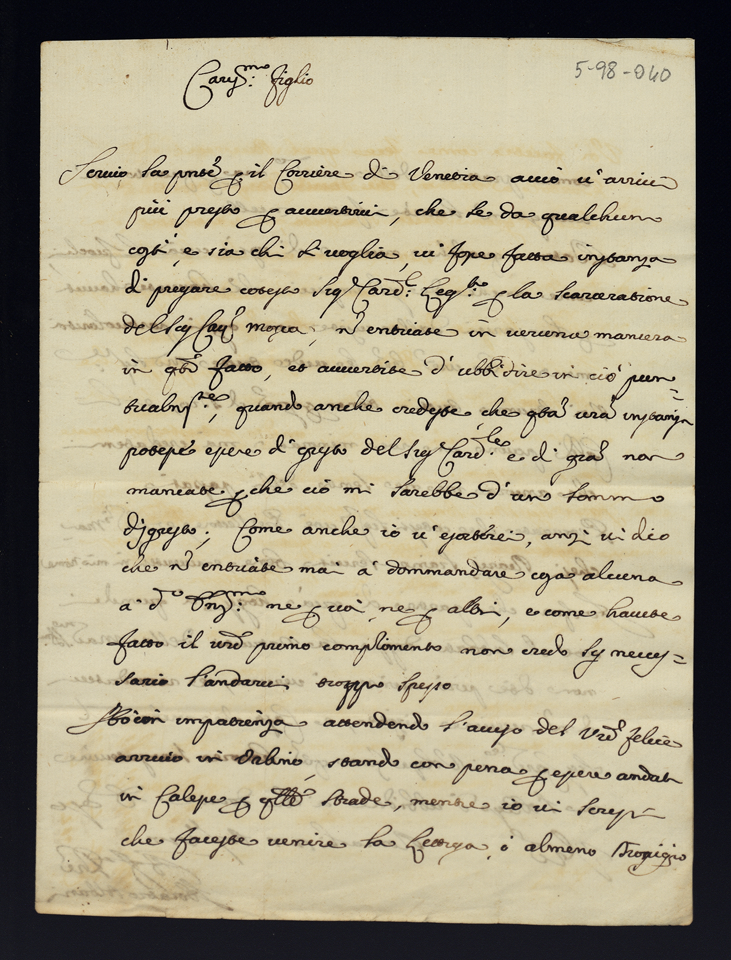 Cariss.mo figlio
5-98-040
Scrivo la pnte p il Corriere di Venetia acciò v'arrivi
più presto p avvertirvi, che se da qualchuno
costì, e sia chi si voglia, vi fosse fatta instanza
di pregare cotesto Sig.r Card.l Leg.to p la scarceratione
del Sig.r Cav.r n. entriate in veruna maniera
in q.to fatto, et avvertite d'ubbidire in ciò pun=
tualm.te, quando anche credeste che q.ta vra instanza
potesse essere di gusto del Sig.r Card.le e di gra non
mancate p che ciò mi sarebbe d'un sommo
disgusto; Come anche io v'esorterei, anzi vi dico
che n. entriate mai a dommandare cosa alcuna
a d.o Em.mo ne p voi, ne p altri, e come havete
fatto il vro primo complimento non credo sij necces=
sario l'andarvi troppo spesso
Stò con impatienza attendendo l'aviso del vro felice
arrivo in Urbino, stando con pena p essere andati
in Calesse p q.lle strade, mentre io vi scrissi
che faceste venire la Lettiga, ò almeno